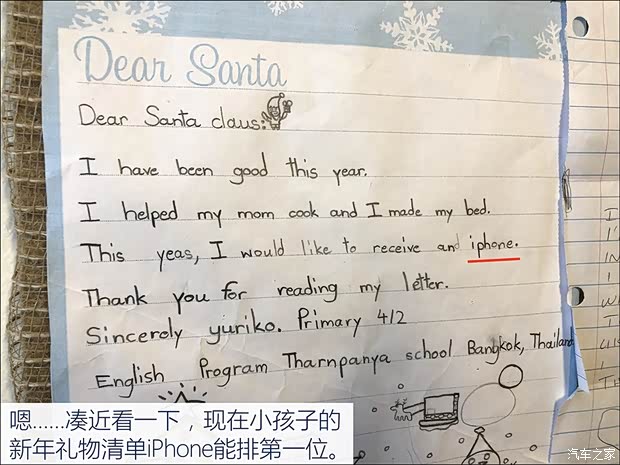 Dear Santa
Dear Santa claus:
I have been good this year.
I helped my mom cook and I made my bed.
This yeas, I would like to receive and iphone.
Thank you for reading my letter.
Sincerely yuriko. Primary 4/2
English Program Tharnpanya school Bangkok, Thailand
嗯......凑近看一下，现在小孩子的
新年礼物清单iPhone能排第一位。
汽车之家